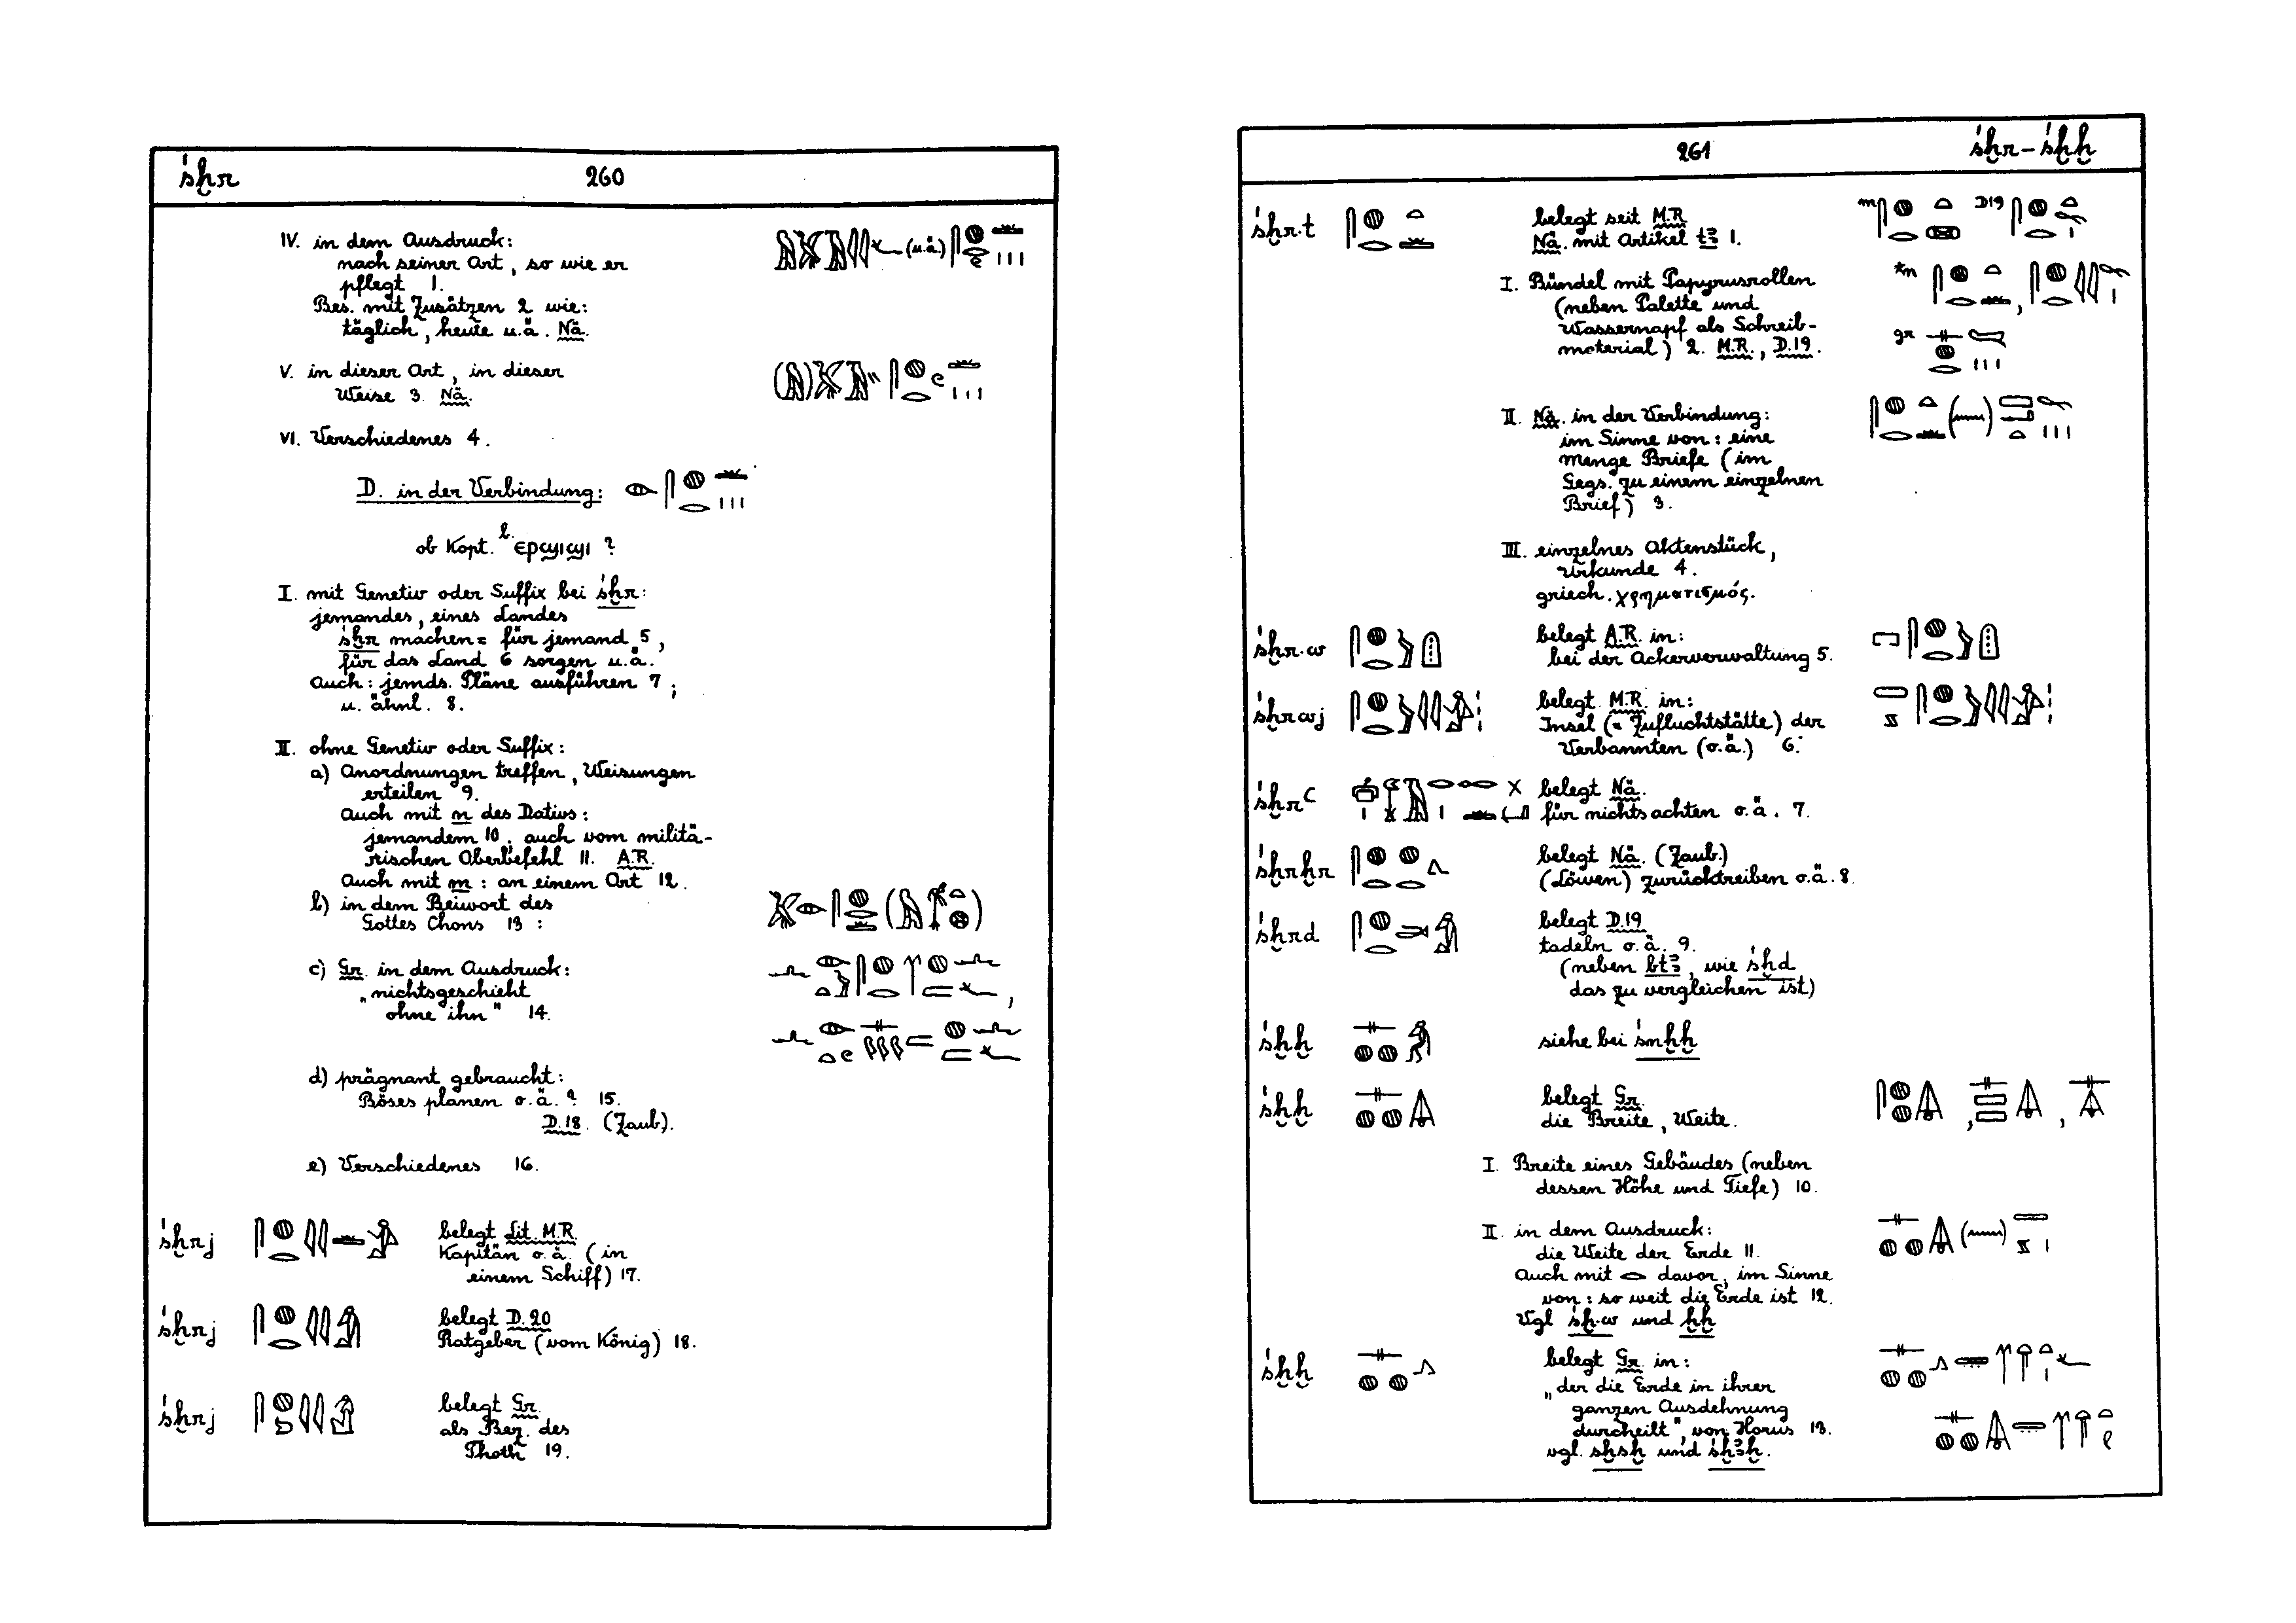 śḫr 260
IV. in dem Ausdruck:
nach seiner Art, so wie er
pflegt 1.
(u.ä.)
Bes. mit Zusätzen 2 wie:
täglich, heute u.ä. Nä.
V. in dieser Art, in dieser
Weise 3. Nä.
VI. Verschiedenes 4.
D. in der Verbindung:
ob Kopt. b. ⲉⲣϣⲓϣⲓ ?
I. mit Genetiv oder Suffix bei śḫr:
jemandes, eines Landes
śḫr machen = für jemand 5,
für das Land 6 sorgen u.ä.
Auch: jemds. Pläne ausführen 7;
u. ähnl. 8.
II. ohne Genetiv oder Suffix:
a) Anordnungen treffen, Weisungen
erteilen 9.
Auch mit n des Dativs:
jemandem 10; auch vom militä-
rischen Oberbefehl 11. A.R.
Auch mit m: an einem Ort 12.
b) in dem Beiwort des
Gottes Chons 13:
c) Gr. in dem Ausdruck:
„nichts geschieht
ohne ihn" 14.
d) prägnant gebraucht:
Böses planen o.ä.? 15.
D.18. (Zaub).
e) Verschiedenes 16.
śḫrj belegt Lit. M.R.
Kapitän o.ä. (in
einem Schiff) 17.
śḫrj belegt D.20
Ratgeber (vom König) 18.
śḫrj belegt Gr.
als Bez. des
Thoth 19.
261 śḫr–śḫḫ
śḫr·t belegt seit M.R. m D19
Nä. mit Artikel tꜣ 1.
I. Bündel mit Papyrusrollen
(neben Palette und
Wassernapf als Schreib-
material) 2. M.R., D.19. gr
II. Nä. in der Verbindung:
im Sinne von: eine
Menge Briefe (im
Gegs. zu einem einzelnen
Brief) 3.
III. einzelnes Aktenstück,
Urkunde 4.
griech. χρηματισμός.
śḫr·w belegt A.R. in:
bei der Ackerverwaltung 5.
śḫrwj belegt M.R. in:
Insel (= Zufluchtstätte) der
Verbannten (o.ä.) 6.
śḫrꜥ belegt Nä.
für nichts achten o.ä. 7.
śḫrḫr belegt Nä. (Zaub.)
(Löwen) zurücktreiben o.ä. 8.
śḫrd belegt D.19
tadeln o.ä. 9.
(neben btꜣ, wie śḫd
das zu vergleichen ist)
śḫḫ siehe bei śnḫḫ
śḫḫ belegt Gr.
die Breite, Weite.
I. Breite eines Gebäudes (neben
dessen Höhe und Tiefe) 10.
II. in dem Ausdruck:
die Weite der Erde 11.
Auch mit 𓂋 davor, im Sinne
von: so weit die Erde ist 12.
Vgl śḫ·w und ḫḫ
śḫḫ belegt Gr. in:
„der die Erde in ihrer
ganzen Ausdehnung
durcheilt", von Horus 13.
vgl. sḫsḫ und śḫꜣḫ.